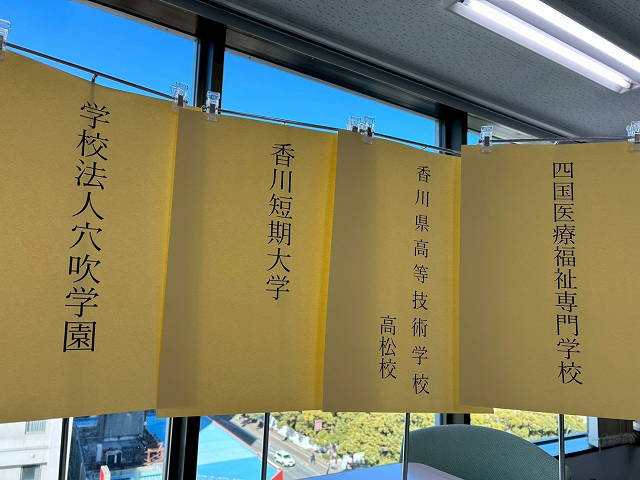 学校法人穴吹学園
香川短期大学
香川県高等技術学校
高松校
四国医療福祉専門学校